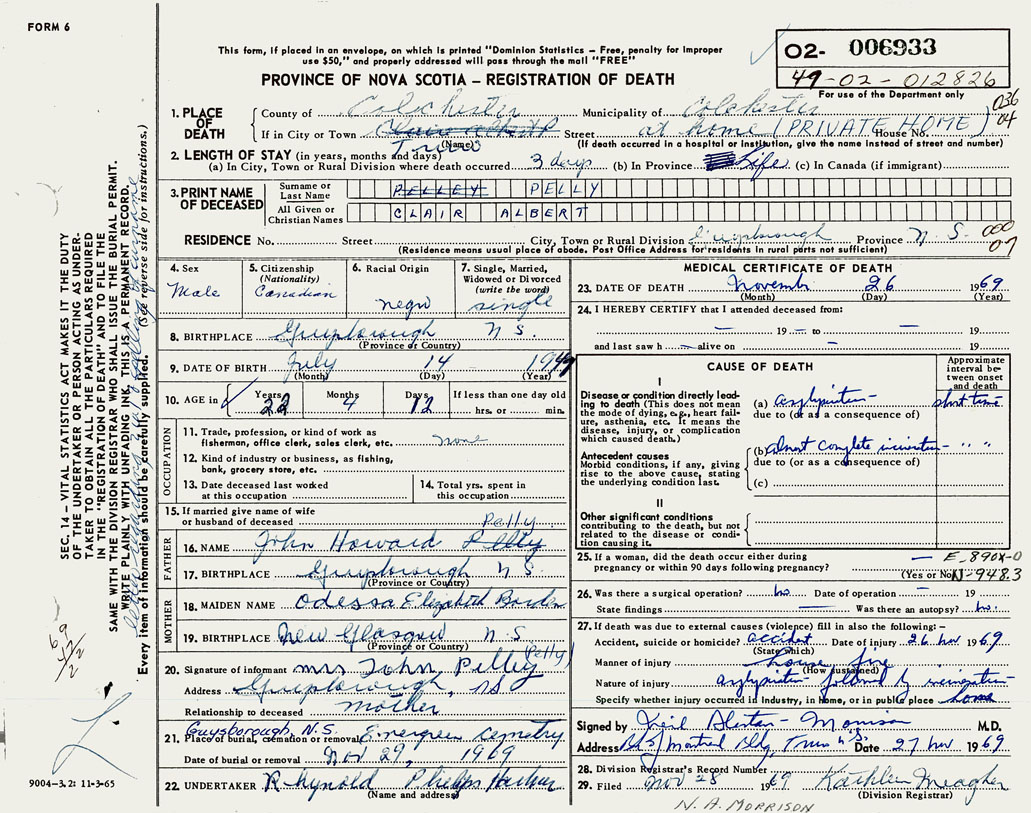 FORM 6
This form, if placed in an envelope, on which is printed "Dominion Statistics – Free, penalty for improper
use $50," and properly addressed will pass through the mail "FREE"
PROVINCE OF NOVA SCOTIA – REGISTRATION OF DEATH
02- 006933
49-02-012826
For use of the Department only
036
04
1. PLACE OF DEATH
County of Colchester Municipality of Colchester
If in City or Town Truro Street at home (PRIVATE HOME) House No.
(Name) (If death occurred in a hospital or institution, give the name instead of street and number)
2. LENGTH OF STAY (in years, months and days)
(a) In City, Town or Rural Division where death occurred 3 days (b) In Province Life (c) In Canada (if immigrant)
3. PRINT NAME OF DECEASED
Surname or Last Name PELLEY PELLY
All Given or Christian Names CLAIR ALBERT
RESIDENCE No. Street City, Town or Rural Division Guysborough Province N.S.
000
07
(Residence means usual place of abode. Post Office Address for residents in rural parts not sufficient)
4. Sex Male
5. Citizenship (Nationality) Canadian
6. Racial Origin negro
7. Single, Married, Widowed or Divorced (write the word) single
8. BIRTHPLACE Guysborough N S.
(Province or Country)
9. DATE OF BIRTH July 14 1947
(Month) (Day) (Year)
10. AGE in Years 22 Months 4 Days 12 If less than one day old hrs. or min.
OCCUPATION
11. Trade, profession, or kind of work as fisherman, office clerk, sales clerk, etc. none
12. Kind of industry or business, as fishing, bank, grocery store, etc.
13. Date deceased last worked at this occupation
14. Total yrs. spent in this occupation
15. If married give name of wife or husband of deceased
FATHER
Pelly
16. NAME John Howard Pelley
17. BIRTHPLACE Guysborough N S.
(Province or Country)
MOTHER
18. MAIDEN NAME Odessa Elizabeth Borden
19. BIRTHPLACE New Glasgow N S
(Province or Country)
(Pelly)
20. Signature of informant Mrs John Pelley
Address Guysborough, NS
Relationship to deceased mother
Guysborough, N.S.
21. Place of burial, cremation or removal Evergreen Cemetry
Date of burial or removal Nov 29, 1969
22. UNDERTAKER R Reynold Phelps
(Name and address)
MEDICAL CERTIFICATE OF DEATH
23. DATE OF DEATH November 26 1969
(Month) (Day) (Year)
24. I HEREBY CERTIFY that I attended deceased from:
— 19 — to — 19
and last saw h — alive on — 19
CAUSE OF DEATH
Approximate interval between onset and death
I
Disease or condition directly leading to death (This does not mean the mode of dying, e.g., heart failure, asthenia, etc. It means the disease, injury, or complication which caused death.)
(a) asphyxiation short time
due to (or as a consequence of)
Antecedent causes
Morbid conditions, if any, giving rise to the above cause, stating the underlying condition last.
(b) almost complete incineration " "
due to (or as a consequence of)
(c)
II
Other significant conditions contributing to the death, but not related to the disease or condition causing it.
25. If a woman, did the death occur either during pregnancy or within 90 days following pregnancy? —
(Yes or No)
E-890X-0
N-948.3
26. Was there a surgical operation? no Date of operation — 19
State findings — Was there an autopsy? no.
27. If death was due to external causes (violence) fill in also the following:–
Accident, suicide or homicide? accident Date of injury 26 Nov 1969
(State which)
Manner of injury house fire
(How sustained)
Nature of injury asphyxiation followed by incineration
Specify whether injury occurred in Industry, in Home, or in public place home
Signed by Neil Alister Morrison M.D.
Address Truro N.S. Date 27 Nov 1969
28. Division Registrar's Record Number
29. Filed Nov 28 1969 Kathleen Meagher
(Division Registrar)
N. A. MORRISON
SEC. 14 – VITAL STATISTICS ACT MAKES IT THE DUTY
OF THE UNDERTAKER OR PERSON ACTING AS UNDER-
TAKER TO OBTAIN ALL THE PARTICULARS REQUIRED
IN THE "REGISTRATION OF DEATH" AND TO FILE THE
SAME WITH THE DIVISION REGISTRAR WHO SHALL ISSUE THE BURIAL PERMIT.
WRITE PLAINLY WITH UNFADING INK, THIS IS A PERMANENT RECORD.
Every item of information should be carefully supplied. (See reverse side for instructions.)
9004–3.2: 11-3-65